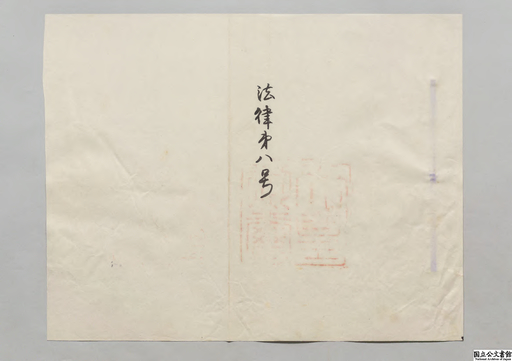 法律第八号
国立公文書館
National Archives of Japan